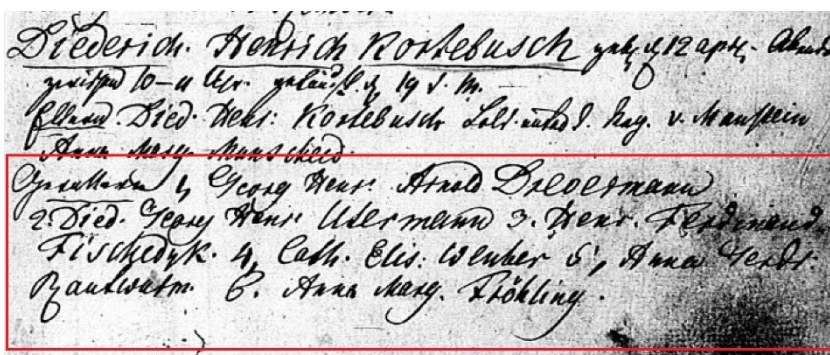 Diederich. Henrich Kortebusch geb. d. 12 apr. Abends
zwischen 10-11 Uhr. getauft d. 19 s. m.
Eltern Died. Henr: Kortebusch Sold. unter d. Reg. v. Manstein
Anna Marg. Manscheid.
Gevattern 1, Georg Henr. Arnold
2. Died. Georg Henr. Utermann 3. Henr. Ferdinand
Fischedyk. 4, Cath. Elis: Wenber 5, Anna Gerdr.
6. Anna Marg. Fröhling.